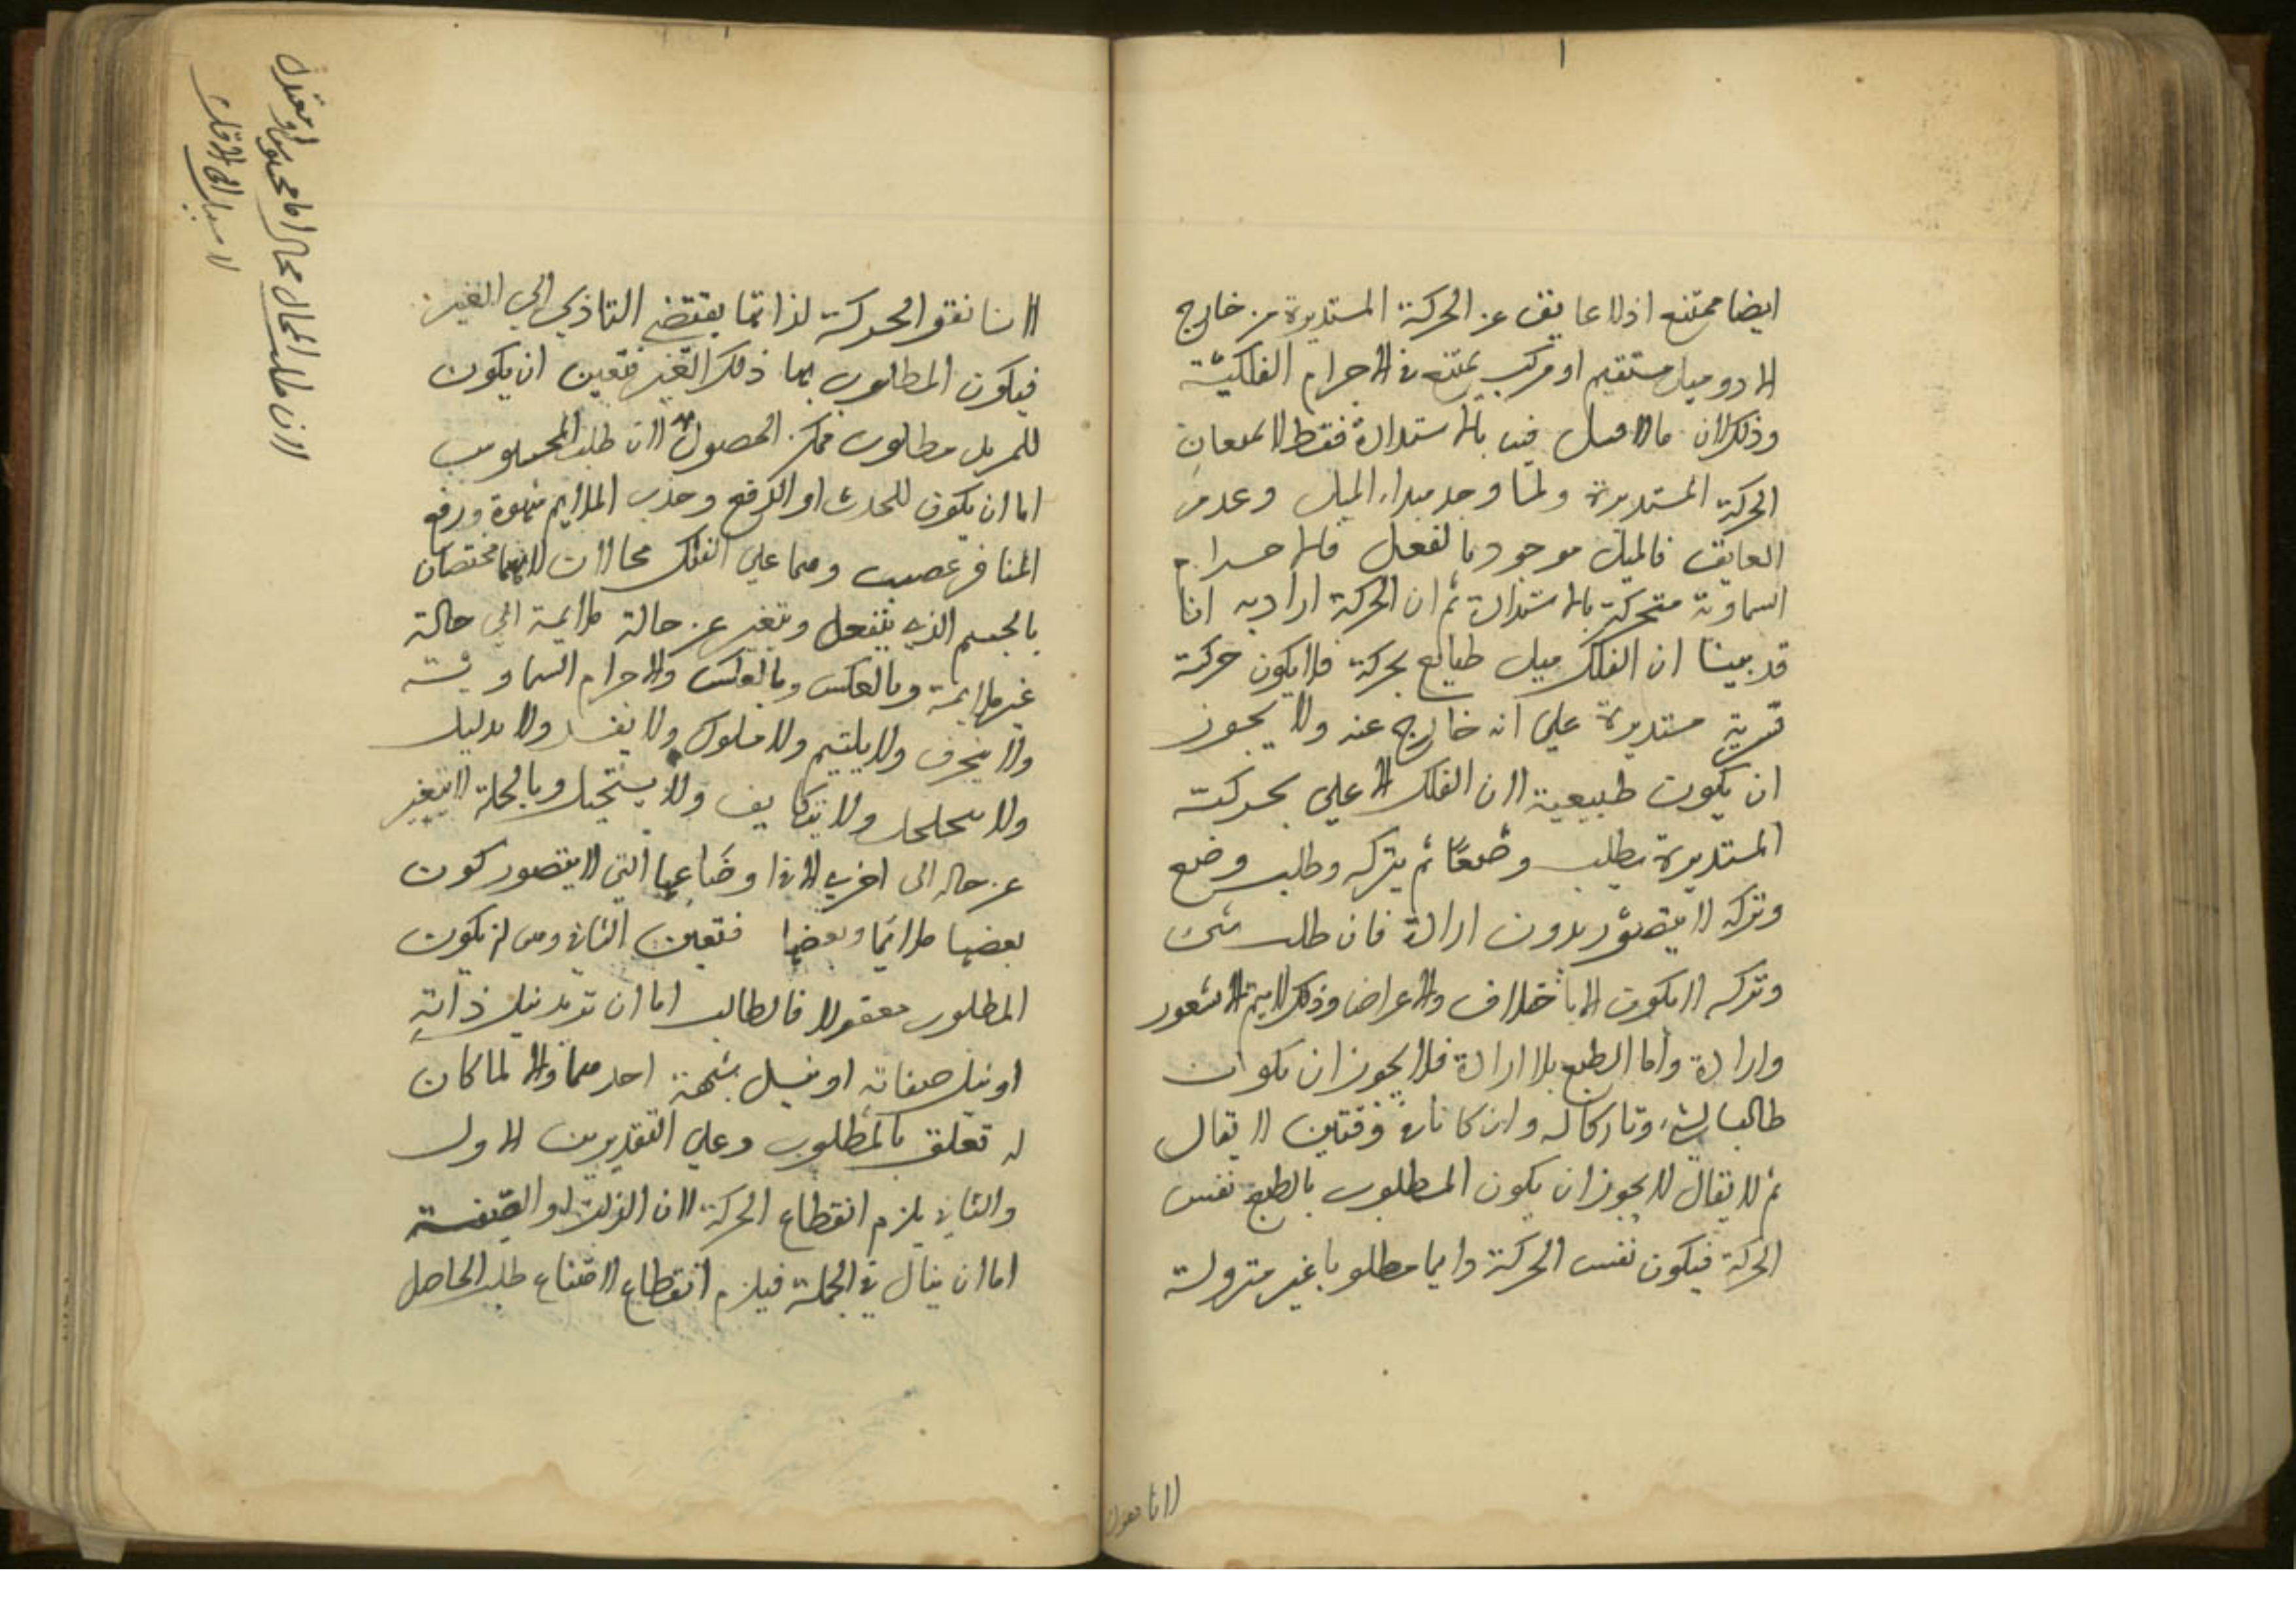 ايضا ممتنع اذ لا عايق عن الحركة المستديرة من خارج
الا ذو ميل مستقيم او مركب يمتنع في الاجرام الفلكية
وذلك لان ما لا ميل فيه بالاستدارة فقط لا يمنعان
الحركة المستديرة ولما وجد مبداء الميل وعدم
العايق فالميل موجود بالفعل فالاجرام
السماوية متحركة بالاستدارة ثم ان الحركة ارادية انا
قد بينا ان الفلك ميل طبايع بحركة فلا يكون حركة
قسرية مستديرة على انه خارج عنه ولا يجوز
ان يكون طبيعية لان الفلك الاعلي بحركته
المستديرة يطلب وضعًا ثم يتركه وطلب وضع
وتركه لا يتصور بدون ارادة فان طلب شئ
وتركه لا يكون الا باختلاف الاعراض وذلك لا يتم الا بشعور
وارادة واما الطبع بلا ارادة فلا يجوز ان يكون
طالبا لشئ وتاركا له وان كانا في وقتين لا يقال
ثم لا يقال لا يجوز ان يكون المطلوب بالطبع نفس
الحركة فيكون نفس الحركة دايما مطلوبا غير متروكة
لانا نقول
لانا نقول الحركة لذاتها يقتضي التاذي الي الغير
فيكون المطلوب بها ذلك الغير فتعين ان يكون
للمريد مطلوب ممكن الحصول لان طلب المحسوس
اما ان يكون للجذب او الدفع وجذب الملايم شهوة ودفع
المنافر غضب وهما علي الفلك محالان لانهما مختصان
بالجسم الذي ينفعل ويتغير عن حالة ملايمة الي حالة
غير ملايمة وبالعكس وبالعكس والاجرام السماوية
ولا ينخرق ولا يلتيم ولا ولا يفسد ولا
ولا يتخلخل ولا يتكاثف ولا يستحيل وبالجملة لا يتغير
عن حاله الى اخري الا في اوضاعها التي لا يتصور كون
بعضها ملائما وبعضها فتعين الثاني وهو ان يكون
المطلوب معقولا فالطالب اما ان تريد نيل ذاته
او نيل صفاته او نيل شبهة احدهما والا لما كان
له تعلق بالمطلوب وعلي التقديرين الاول
والثاني يلزم انقطاع الحركة لان الذات او الصفة
اما ان ينال في الجملة فيلزم انقطاع لامتناع طلب الحاصل
لان طلب المحال محال اما محسوس او معقول
لا سبيل الى الاول